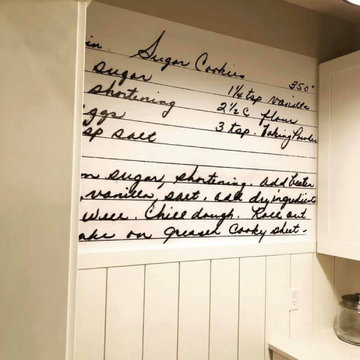 in. Sugar Cookies 350°
sugar 1¼ tsp vanilla
shortening 2½ C flour
eggs 3 tsp. Baking Powder
sp salt
m sugar, shortening. add beaten
, vanilla, salt, add dry ingredients
well. Chill dough. Roll out
ake on greased cooky sheet -